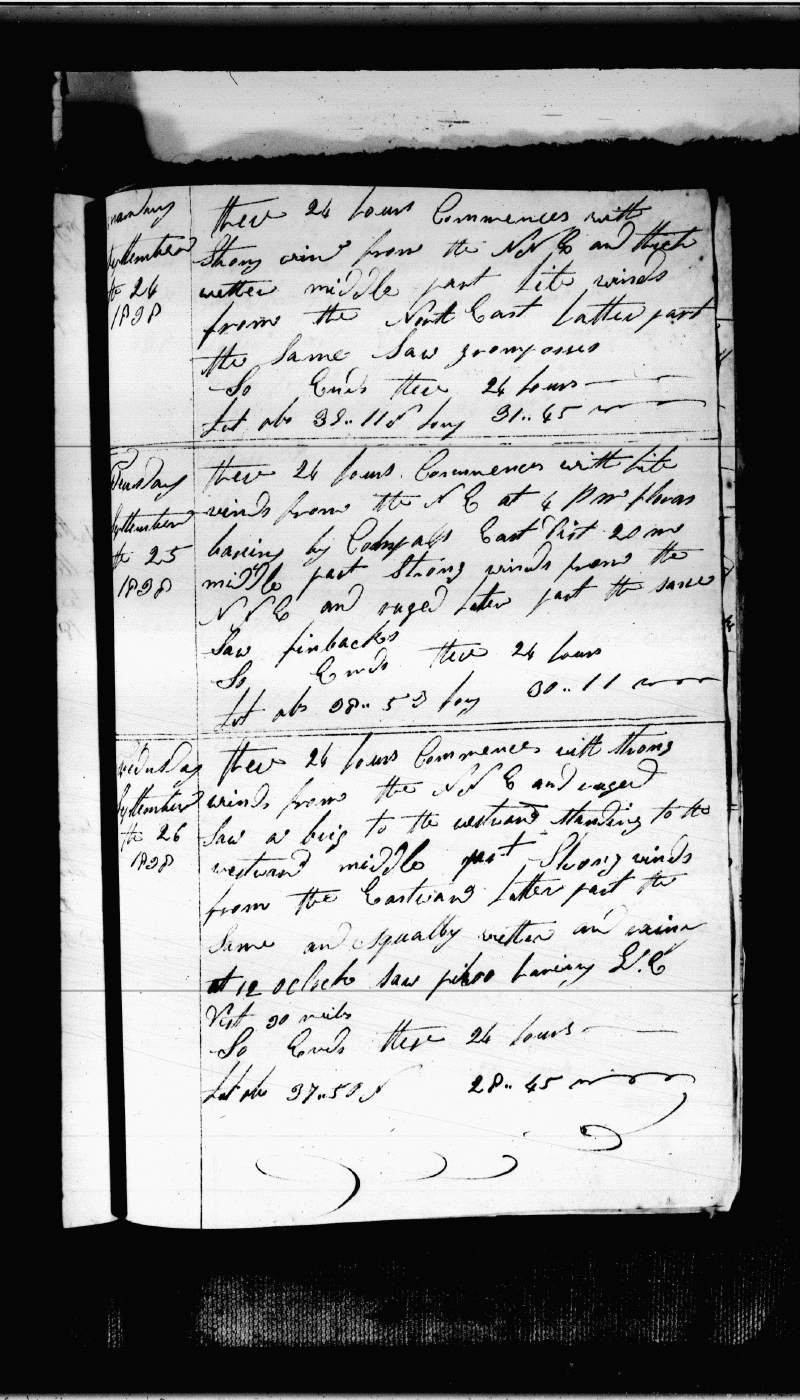 monday
September
the 24
1838
these 24 hours Commences with
Strong wind from the N N E and thick
wether middle part lite winds
from the North East Latter part
the Same Saw
So Ends these 24 hours
Lat obs 39.. 11 N long 31.. 45
Tuesday
September
the 25
1838
these 24 hours Commences with lite
winds from the N E at 4 P m flores
baring by Compass East Dist 20 m
middle part Strong winds from the
N N E and ruged Later part the same
Saw finbacks
So Ends these 24 hours
Lat obs 38.. 53 long 30.. 11
Wednsday
September
the 26
1838
these 24 hours Commences with Strong
winds from the N N E and ruged
Saw a brig to the westward Standing to the
westward middle part Strong winds
from the Eastward Latter part the
Same and Squally wether and raine
at 12 oclock saw baring E
Dist 30 miles
So Ends these 24 hours
Lat obs 37.. 50 N 28.. 45